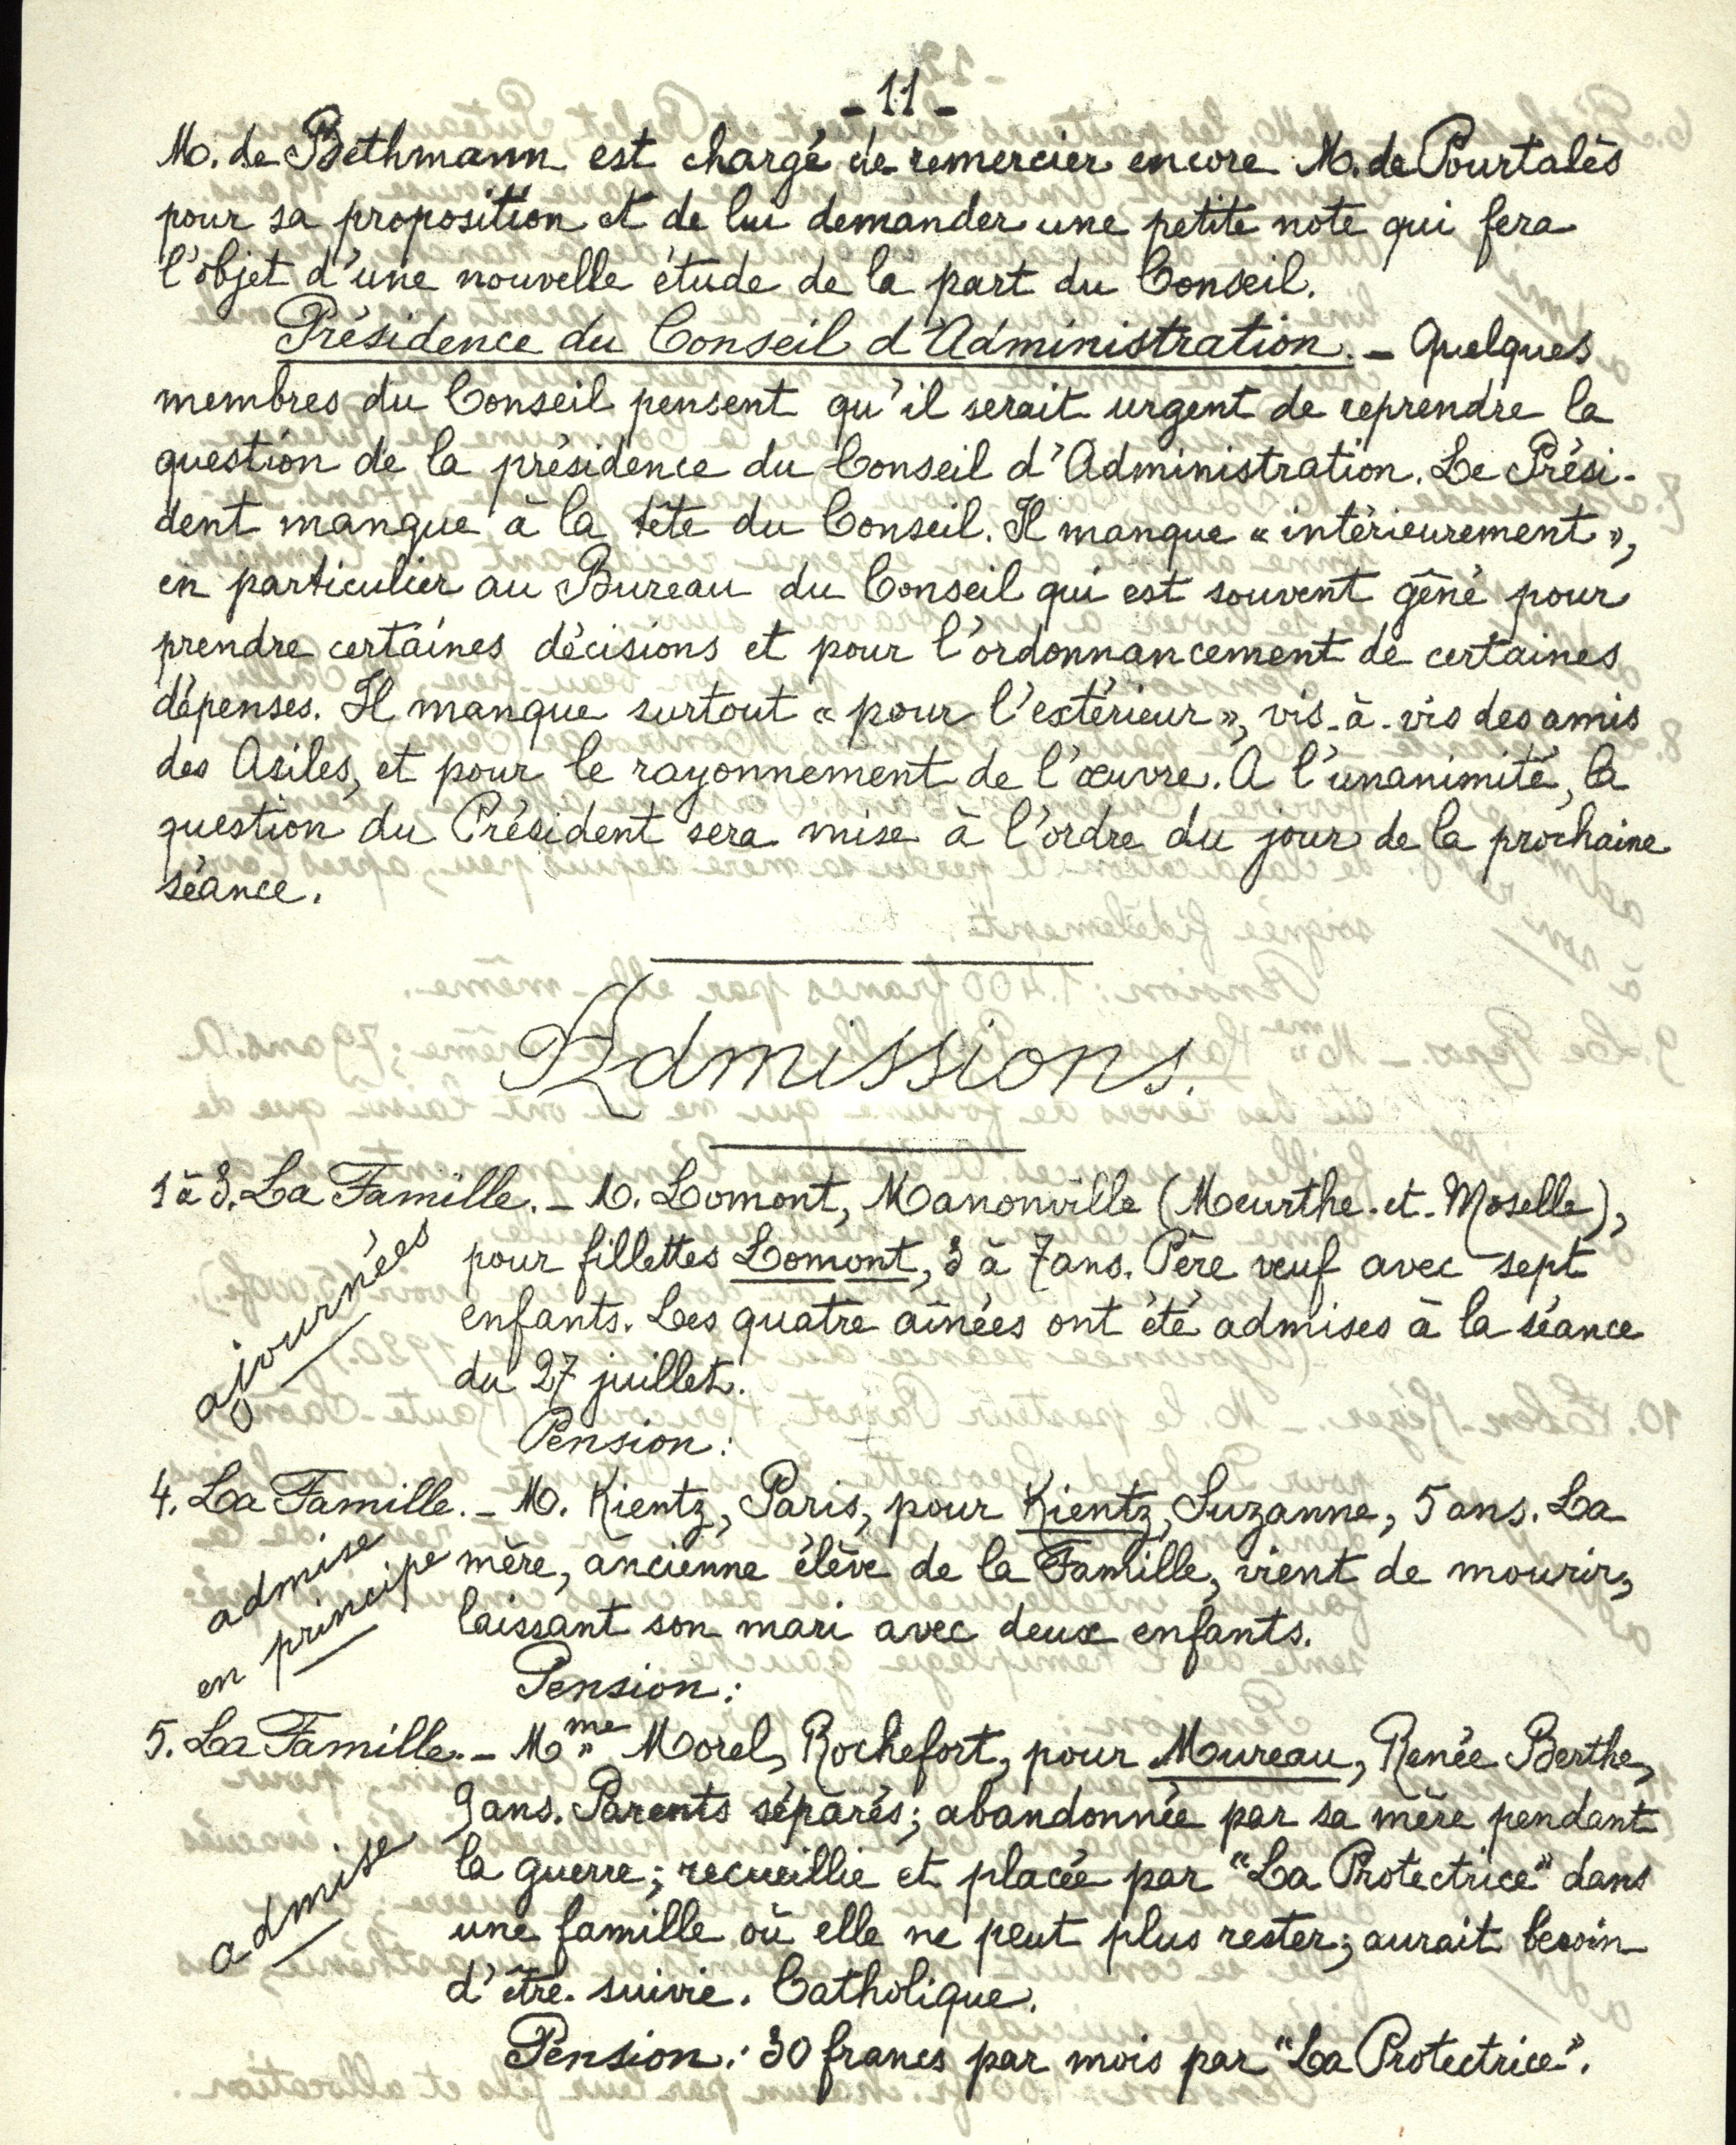 - 11 -
M. de Bethmann est chargé de remercier encore M. de Pourtalès
pour sa proposition et de lui demander une petite note qui fera
l'objet d'une nouvelle étude de la part du Conseil.
Présidence du Conseil d'Administration. - Quelques
membres du Conseil pensent qu'il serait urgent de reprendre la
question de la présidence du Conseil d'Administration. Le Prési-
dent manque à la tête du Conseil. Il manque « intérieurement »,
en particulier au Bureau du Conseil qui est souvent gêné pour
prendre certaines décisions et pour l'ordonnancement de certaines
dépenses. Il manque surtout « pour l'extérieur », vis-à-vis des amis
des Asiles, et pour le rayonnement de l'œuvre. A l'unanimité, la
question du Président sera mise à l'ordre du jour de la prochaine
séance.
Admissions.
1 à 3. La Famille. - M. Lomont, Manonville (Meurthe-et-Moselle),
pour fillettes Lomont, 3 à 7 ans. Père veuf avec sept
enfants. Les quatre aînées ont été admises à la séance
du 27 juillet.
ajournées
Pension :
4. La Famille. - M. Kientz, Paris, pour Kientz, Suzanne, 5 ans. La
mère, ancienne élève de la Famille, vient de mourir,
laissant son mari avec deux enfants.
admise
en principe
Pension :
5. La Famille. - Mme Morel, Rochefort, pour Mureau, Renée Berthe,
9 ans. Parents séparés ; abandonnée par sa mère pendant
la guerre ; recueillie et placée par "La Protectrice" dans
une famille où elle ne peut plus rester ; aurait besoin
d'être suivie. Catholique.
admise
Pension : 30 francs par mois par "La Protectrice".